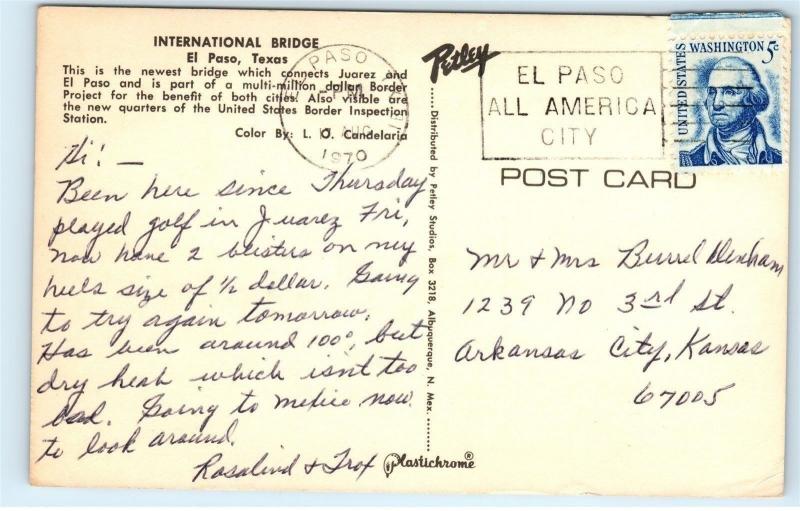 INTERNATIONAL BRIDGE
El Paso, Texas
This is the newest bridge which connects Juarez and
El Paso and is part of a multi-million dollar Border
Project for the benefit of both cities. Also visible are
the new quarters of the United States Border Inspection
Station.
Color By: L. O. Candelaria
Hi! —
Been here since Thursday
played golf in Juarez Fri,
now have 2 blisters on my
heels size of ½ dollar. Going
to try again tomorrow.
Has been around 100°, but
dry heat which isn't too
bad. Going to Mexico now
to look around.
Rosalind & Trox
EL PASO
AUG
1970
Petley
Distributed by Petley Studios, Box 3218, Albuquerque, N. Mex.
Plastichrome®
EL PASO
ALL AMERICA
CITY
UNITED STATES
WASHINGTON 5c
POST CARD
Mr & Mrs Burrel Denham
1239 No 3rd St.
Arkansas City, Kansas
67005